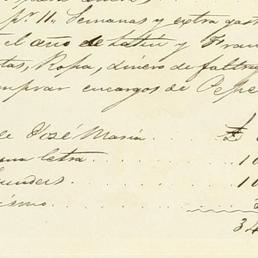 pr. 11. Semanas y extra gast
el año de Latin y Fran
tas, Ropa, dinero de faltriq
mprar encargos de Pepe
e José Maria
una letra 10
unders 10
ismo
34